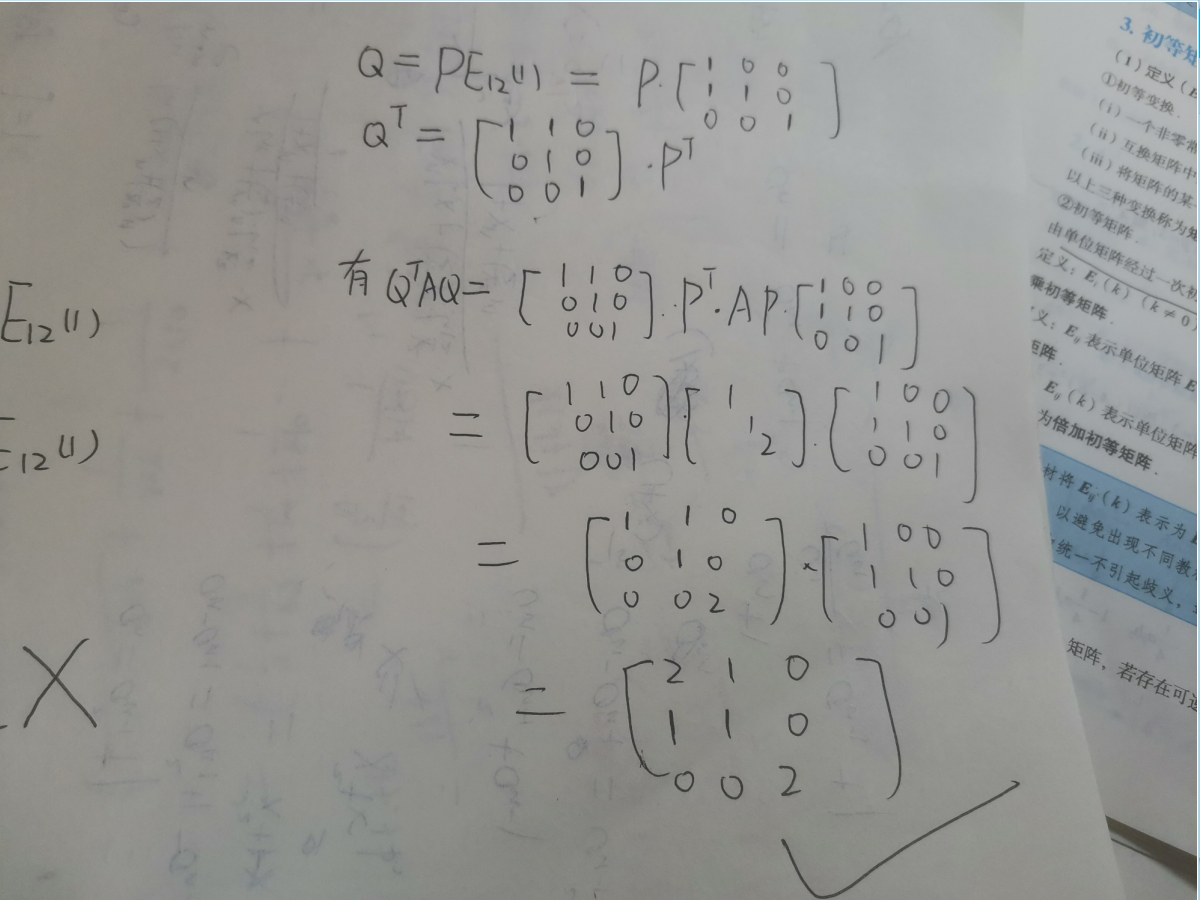 Q = PE₁₂(1) = P·[1 0 0
1 1 0
0 0 1]
Qᵀ = [1 1 0
0 1 0
0 0 1]·Pᵀ
有 QᵀAQ = [1 1 0
0 1 0
0 0 1]·Pᵀ·AP·[1 0 0
1 1 0
0 0 1]
E₁₂(1)
= [1 1 0
0 1 0
0 0 1]·[1
1
2]·[1 0 0
1 1 0
0 0 1]
E₁₂(1)
= [1 1 0
0 1 0
0 0 2]×[1 0 0
1 1 0
0 0 1]
= [2 1 0
1 1 0
0 0 2]
3. 初等矩
(1)定义(E
①初等变换.
(i)一个非零常
(ii)互换矩阵中
(iii)将矩阵的某
以上三种变换称为矩
②初等矩阵.
由单位矩阵经过一次初
定义:Eᵢ(k)(k≠0)
乘初等矩阵.
义:Eᵢⱼ表示单位矩阵E
矩阵.
Eᵢⱼ(k)表示单位矩阵
为倍加初等矩阵.
材将Eᵢⱼ(k)表示为E
以避免出现不同教
统一不引起歧义,
矩阵,若存在可逆